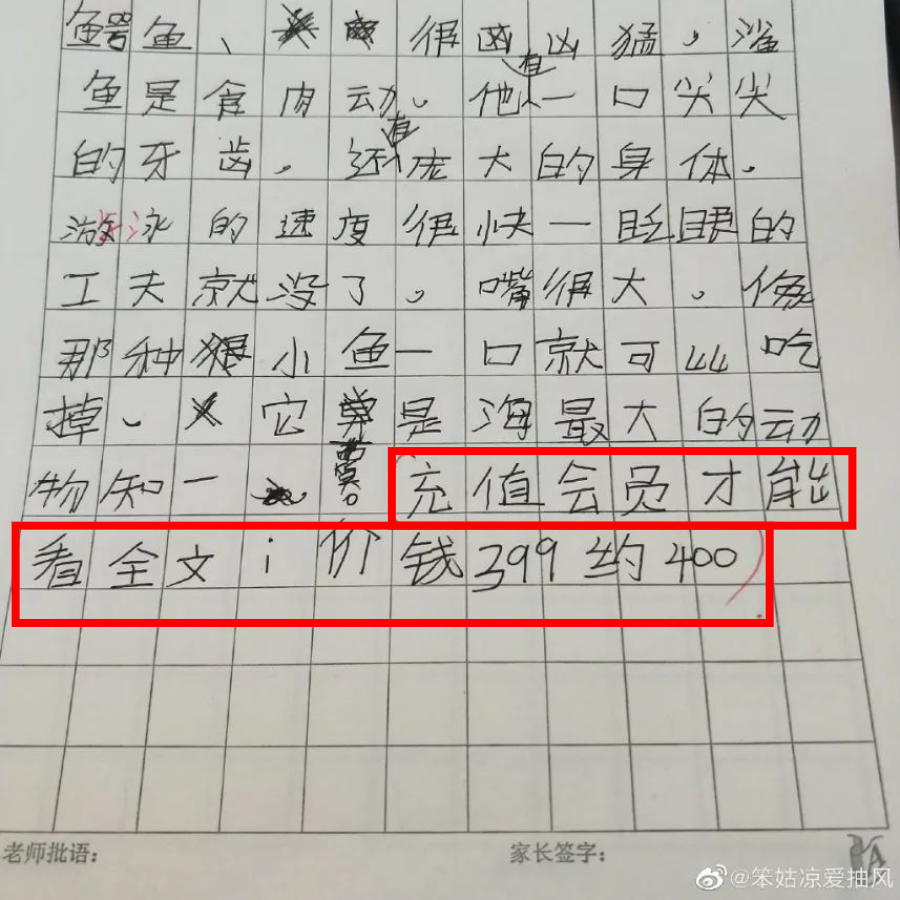 鳄鱼、很凶凶猛，鲨
鱼是食肉动。他有一口尖尖
的牙齿。还有庞大的身体。
游泳的速度很快一眨眼的
工夫就没了。嘴很大。像
那种小鱼一口就可以吃
掉、它是海最大的动
物知一。充值会员才能
看全文i价钱399约400
老师批语： 家长签字：
@笨姑凉爱抽风